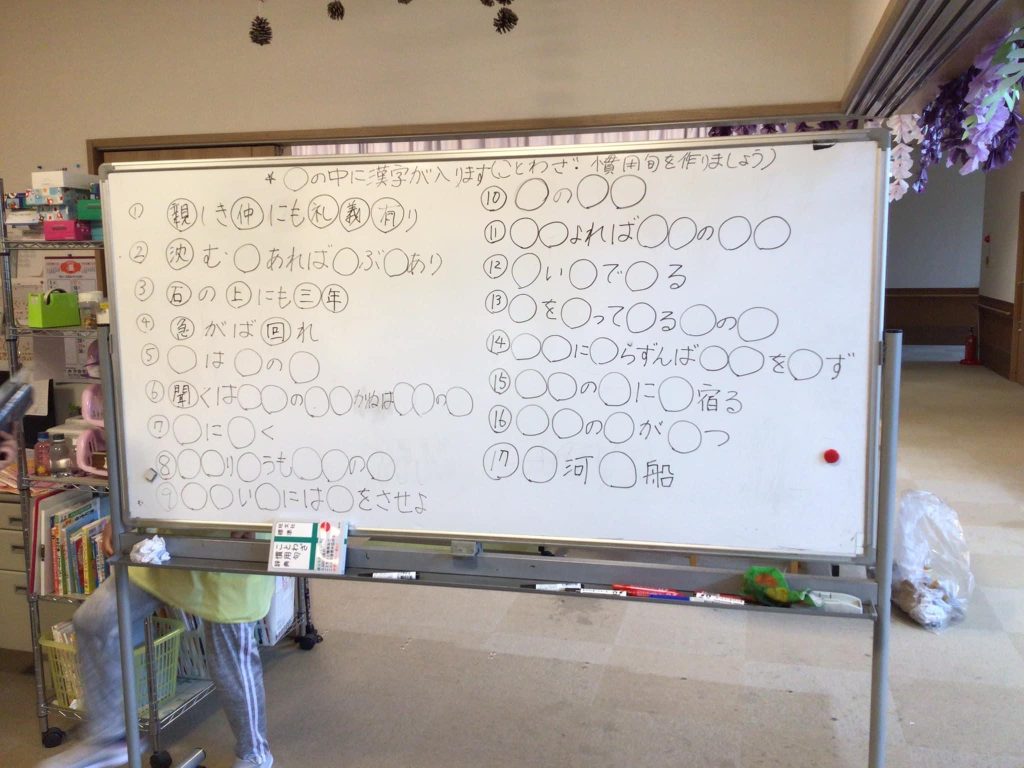 * ○の中に漢字が入ります(ことわざ・慣用句を作りましょう)
① 親しき仲にも礼義有り
② 沈む○あれば○ぶ○あり
③ 石の上にも三年
④ 急がば回れ
⑤ ○は○の○
⑥ 聞くは○○の○○かねは○○の○
⑦ ○に○く
⑧ ○○り○うも○○の○
⑨ ○○い○には○をさせよ
⑩ ○の○○
⑪ ○○よれば○○の○○
⑫ ○い○で○る
⑬ ○を○って○る○の○
⑭ ○○に○らずんば○○を○ず
⑮ ○○の○に○宿る
⑯ ○○の○が○つ
⑰ ○河○船
ことわざ
慣用句
辞典